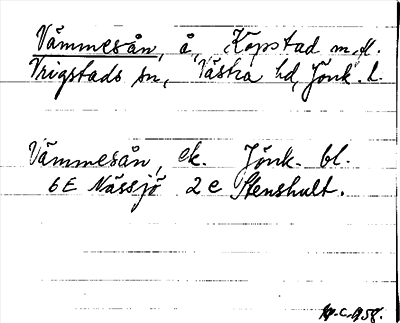 Vämmesån, å, Köpstad m.fl.
Vrigstads sn, Västra hd, Jönk. l.
Vämmesån, ek. Jönk. bl.
6E Nässjö 2c Stenshult.
1958.